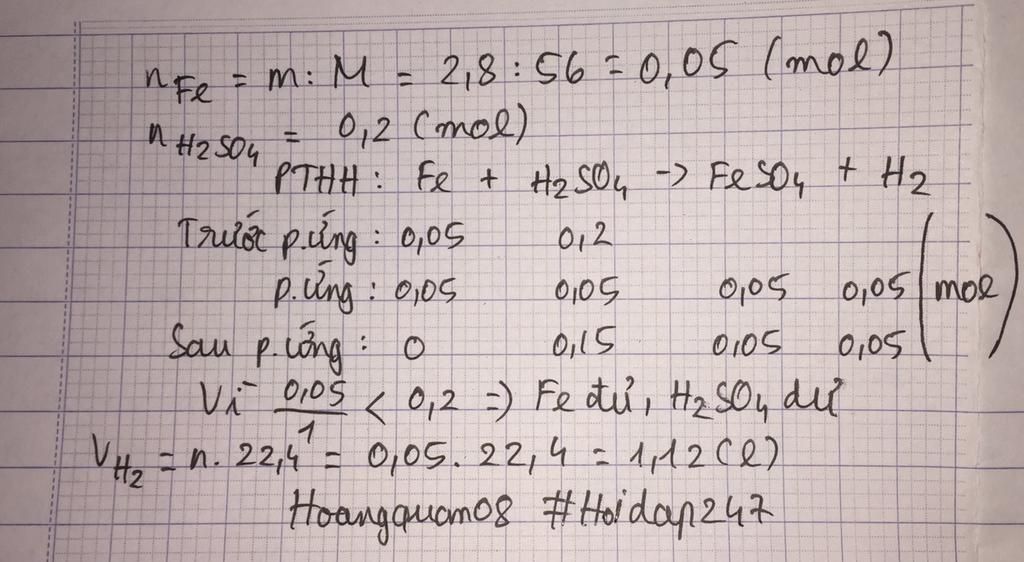 nFe = m : M = 2,8 : 56 = 0,05 (mol)
nH2SO4 = 0,2 (mol)
PTHH : Fe + H2SO4 -> FeSO4 + H2
Trước p.ứng : 0,05 0,2
p.ứng : 0,05 0,05 0,05 0,05 (mol)
Sau p.ứng : 0 0,15 0,05 0,05
Vì 0,05/1 < 0,2 => Fe đủ, H2SO4 dư
VH2 = n. 22,4 = 0,05. 22,4 = 1,12 (l)
Hoangquam08 #Hoidap247